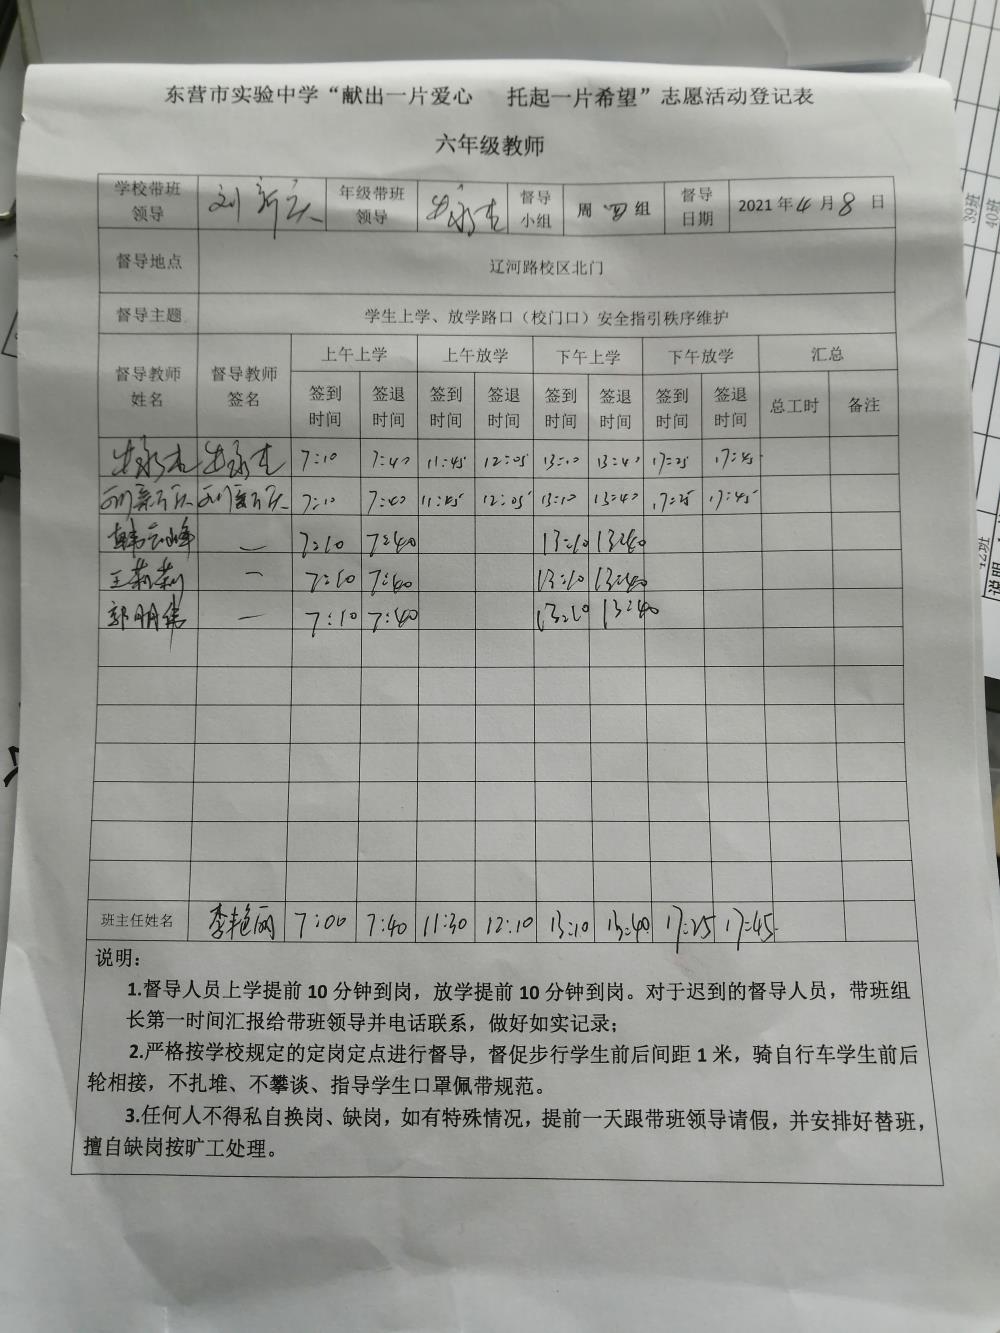 东营市实验中学“献出一片爱心 托起一片希望”志愿活动登记表
六年级教师
学校带班领导 刘新庆 年级带班领导 永吉 督导小组 周四组 督导日期 2021年4月8日
督导地点 辽河路校区北门
督导主题 学生上学、放学路口（校门口）安全指引秩序维护
督导教师姓名 督导教师签名 上午上学 上午放学 下午上学 下午放学 汇总
签到时间 签退时间 签到时间 签退时间 签到时间 签退时间 签到时间 签退时间 总工时 备注
7:10 7:40 11:45 12:05 13:10 13:40 17:25 17:45
刘新庆 刘新庆 7:10 7:40 11:45 12:05 13:10 13:40 17:25 17:45
韩云峰 — 7:10 7:40 13:10 13:40
王莉莉 — 7:10 7:40 13:10 13:40
郭明伟 — 7:10 7:40 13:10 13:40
班主任姓名 李艳丽 7:00 7:40 11:30 12:10 13:10 13:40 17:25 17:45
说明：
1.督导人员上学提前 10 分钟到岗，放学提前 10 分钟到岗。对于迟到的督导人员，带班组
长第一时间汇报给带班领导并电话联系，做好如实记录；
2.严格按学校规定的定岗定点进行督导，督促步行学生前后间距 1 米，骑自行车学生前后
轮相接，不扎堆、不攀谈、指导学生口罩佩带规范。
3.任何人不得私自换岗、缺岗，如有特殊情况，提前一天跟带班领导请假，并安排好替班，
擅自缺岗按旷工处理。
39班
40班
42班
说明